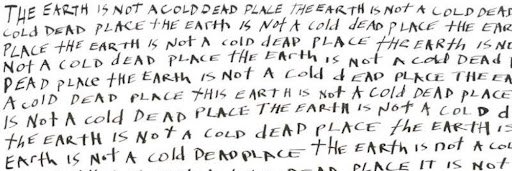 THE EARTH IS NOT A COLD DEAD PLACE THE EARTH IS NOT A COLD DEAD
COLD DEAD PLACE THE EARTH IS NOT A COLD dEAD PLACE THE EAR
PLACE tHE EARTH IS Not A cold DEAD PLACE THE EARth IS NO
Not A COLD dEAD PLACE THE EARTH IS NOT A COLD DEAD
DEAD PLACE tHE EARth IS NOT A Cold dEAD PLACE THE EA
A COLD DEAD PLACE THIS EARTH IS NOt A COLD DEAD PLACE
IS NOt A COLD DEAD PLACE THE EARtH IS NOt A COLD d
tHE EARTH IS NOT A COLD dEAD PLACE tHE EARTH IS
EARth IS NOt A Cold DEAD PLACE tHE EARTH IS NOT A COL
PLACE IT IS NOT